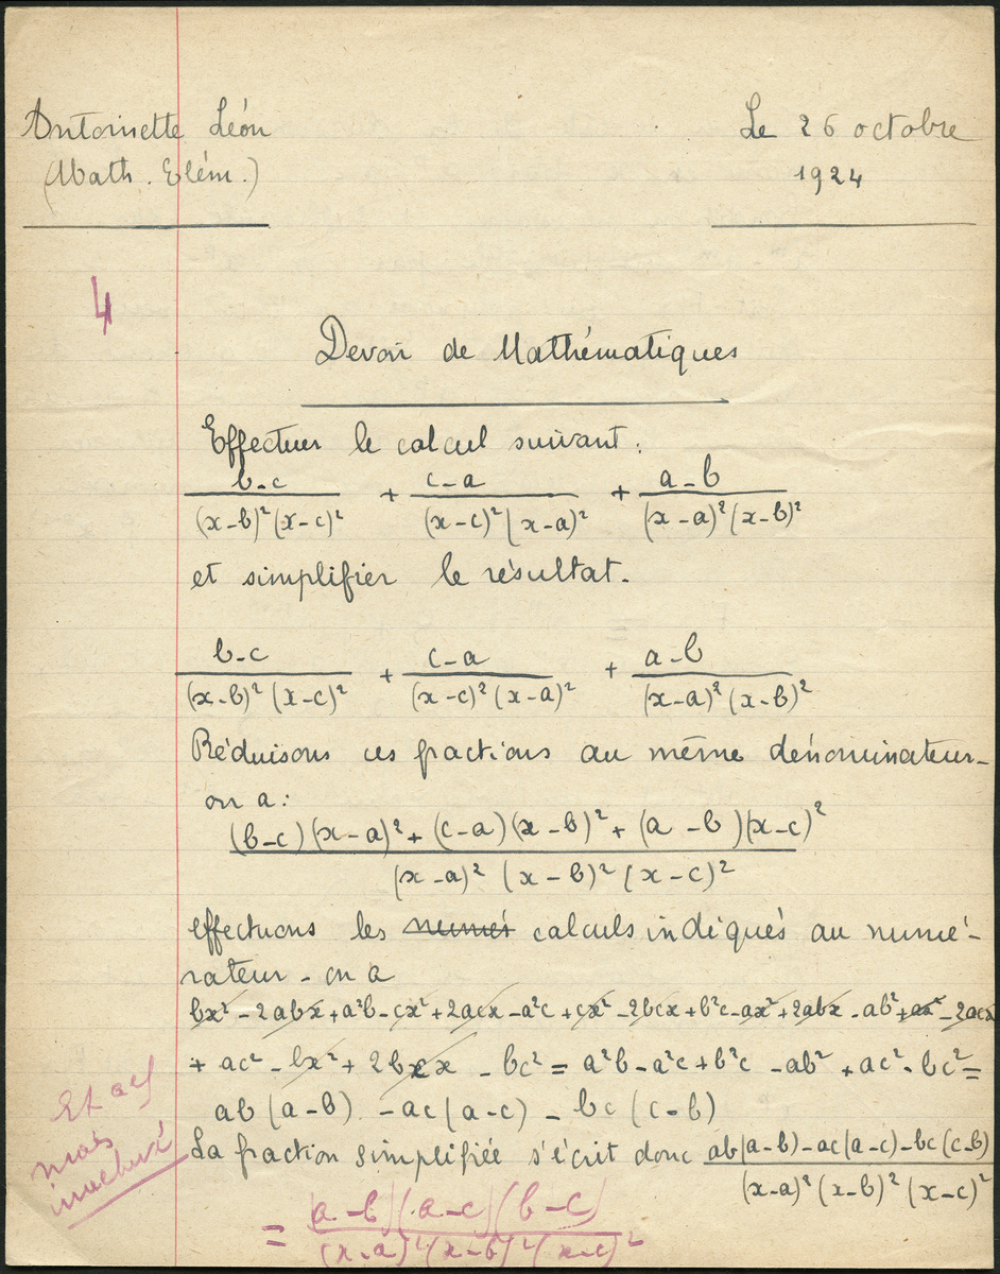 Antoinette Léon
Le 26 octobre
(Math. Elém.)
1924
4
Devoir de Mathématiques
Effectuer le calcul suivant :
b-c / (x-b)²(x-c)² + c-a / (x-c)²(x-a)² + a-b / (x-a)²(x-b)²
et simplifier le résultat.
b-c / (x-b)²(x-c)² + c-a / (x-c)²(x-a)² + a-b / (x-a)²(x-b)²
Réduisons ces fractions au même dénominateur-
on a :
(b-c)(x-a)² + (c-a)(x-b)² + (a-b)(x-c)²
(x-a)² (x-b)² (x-c)²
effectuons les numé calculs indiqués au numé-
rateur - on a
bx² - 2abx + a²b - cx² + 2acx - a²c + cx² - 2bcx + b²c - ax² + 2abx - ab² + ax² - 2acx
+ ac² - bx² + 2bcx - bc² = a²b - a²c + b²c - ab² + ac² - bc² =
ab(a-b) - ac(a-c) - bc(c-b)
La fraction simplifiée s'écrit donc ab(a-b) - ac(a-c) - bc(c-b) / (x-a)² (x-b)² (x-c)²
mais
inachevé
= (a-b)(a-c)(b-c) / (x-a)²(x-b)²(x-c)²